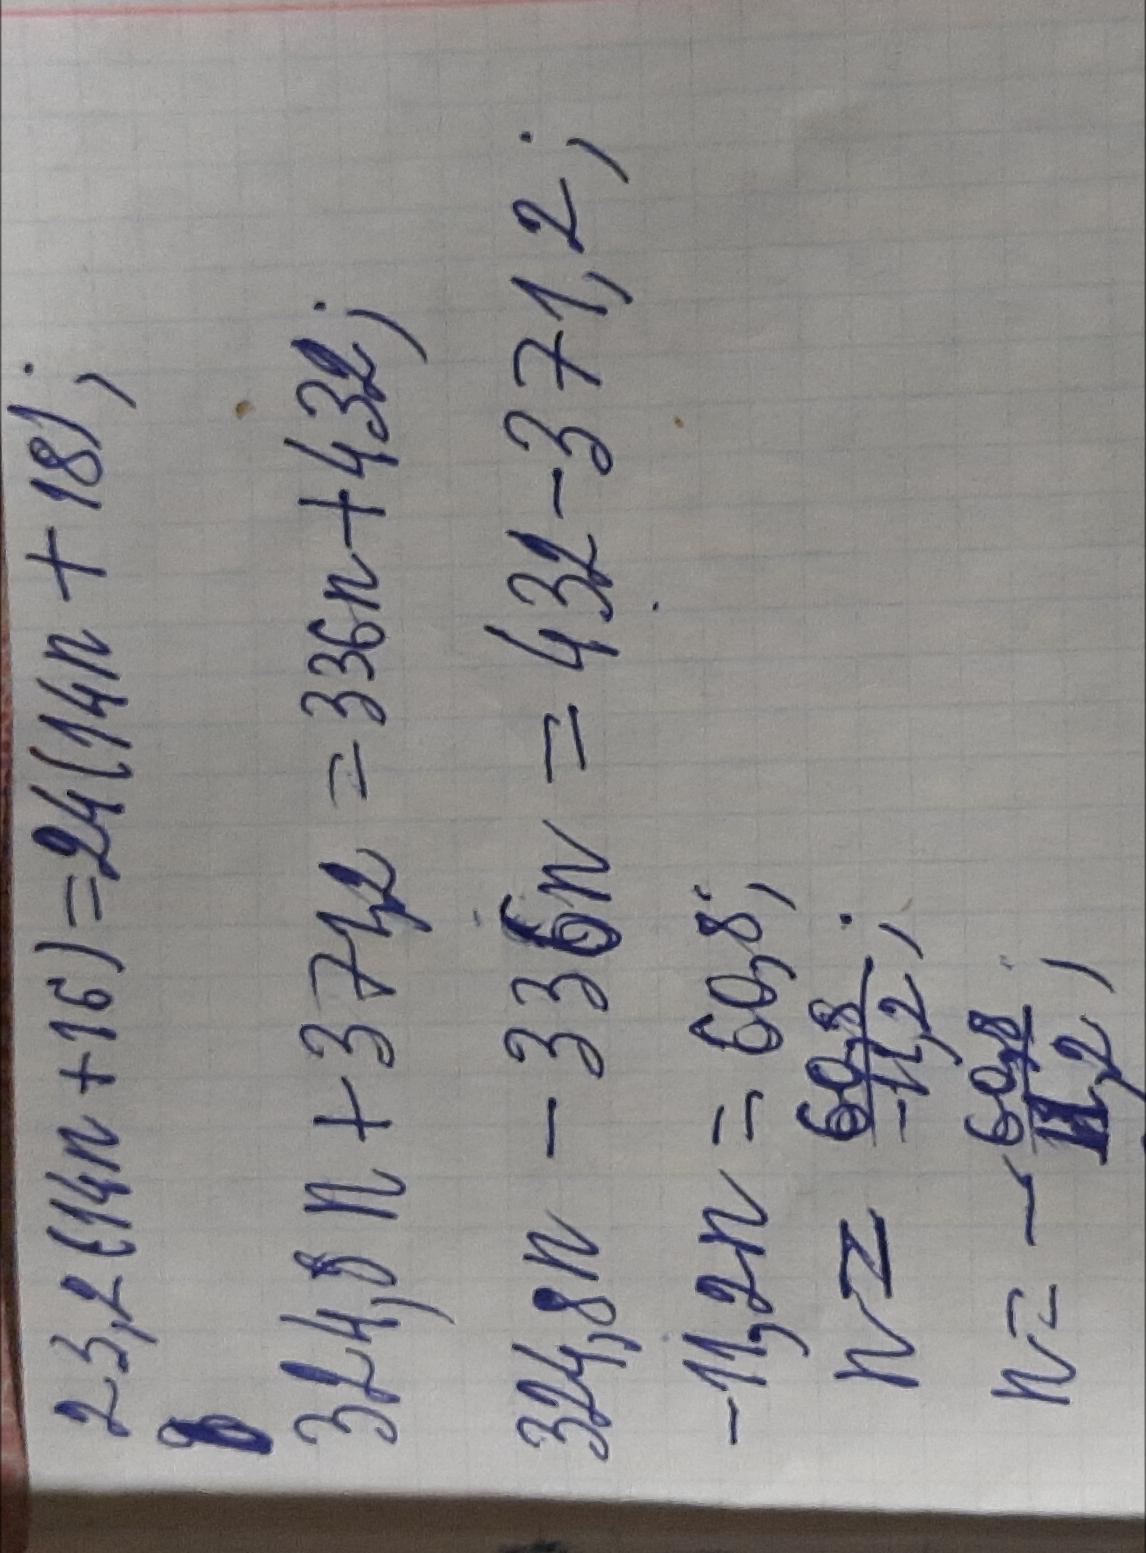 23,2(14n+16)=24(14n+18);
324,8n+371,2=336n+432;
324,8n-336n=432-371,2;
-11,2n=60,8;
n=60,8/-11,2;
n=-60,8/11,2;